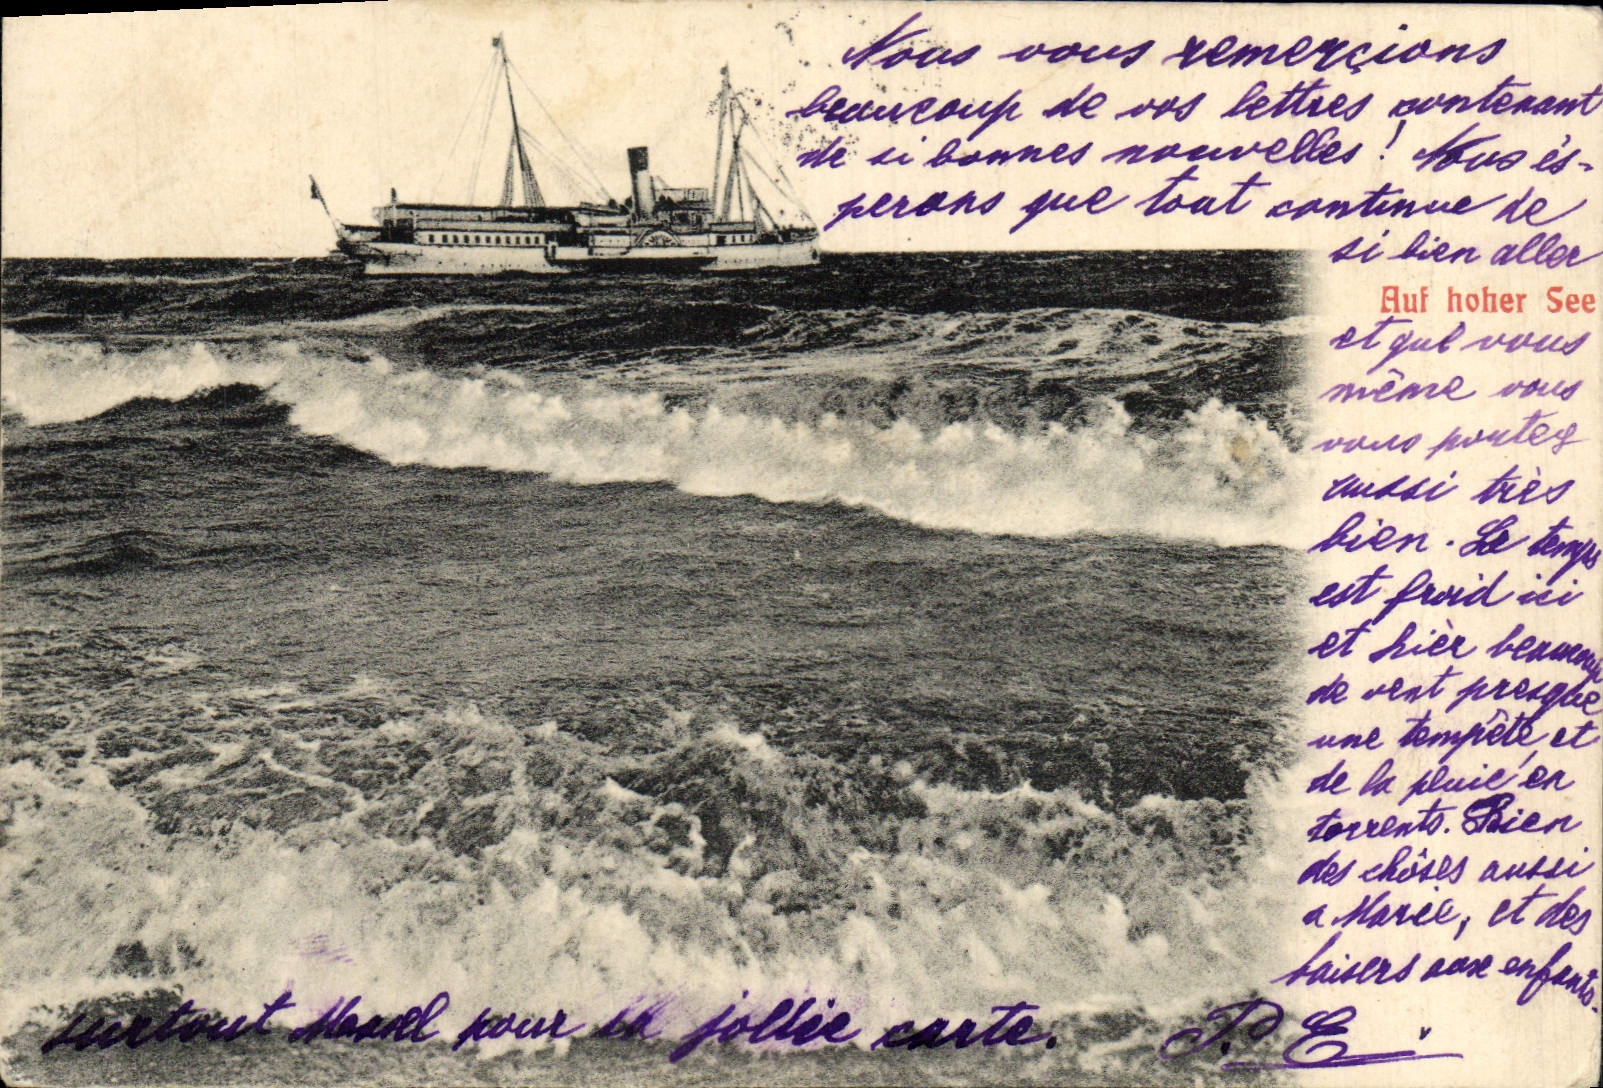 Nous vous remerçions
beaucoup de vos lettres contenant
de si bonnes nouvelles! Nous ès-
perons que tout continue de
si bien aller
Auf hoher See
et que vous
même vous
vous portez
aussi très
bien. Le temps
est froid ici
et hièr beaucoup
de vent presque
une tempête et
de la pluie en
torrents. Bien
des chôses aussi
a Marie, et des
baisers aux enfants.
surtout Marcel pour sa jollie carte.
P. E.